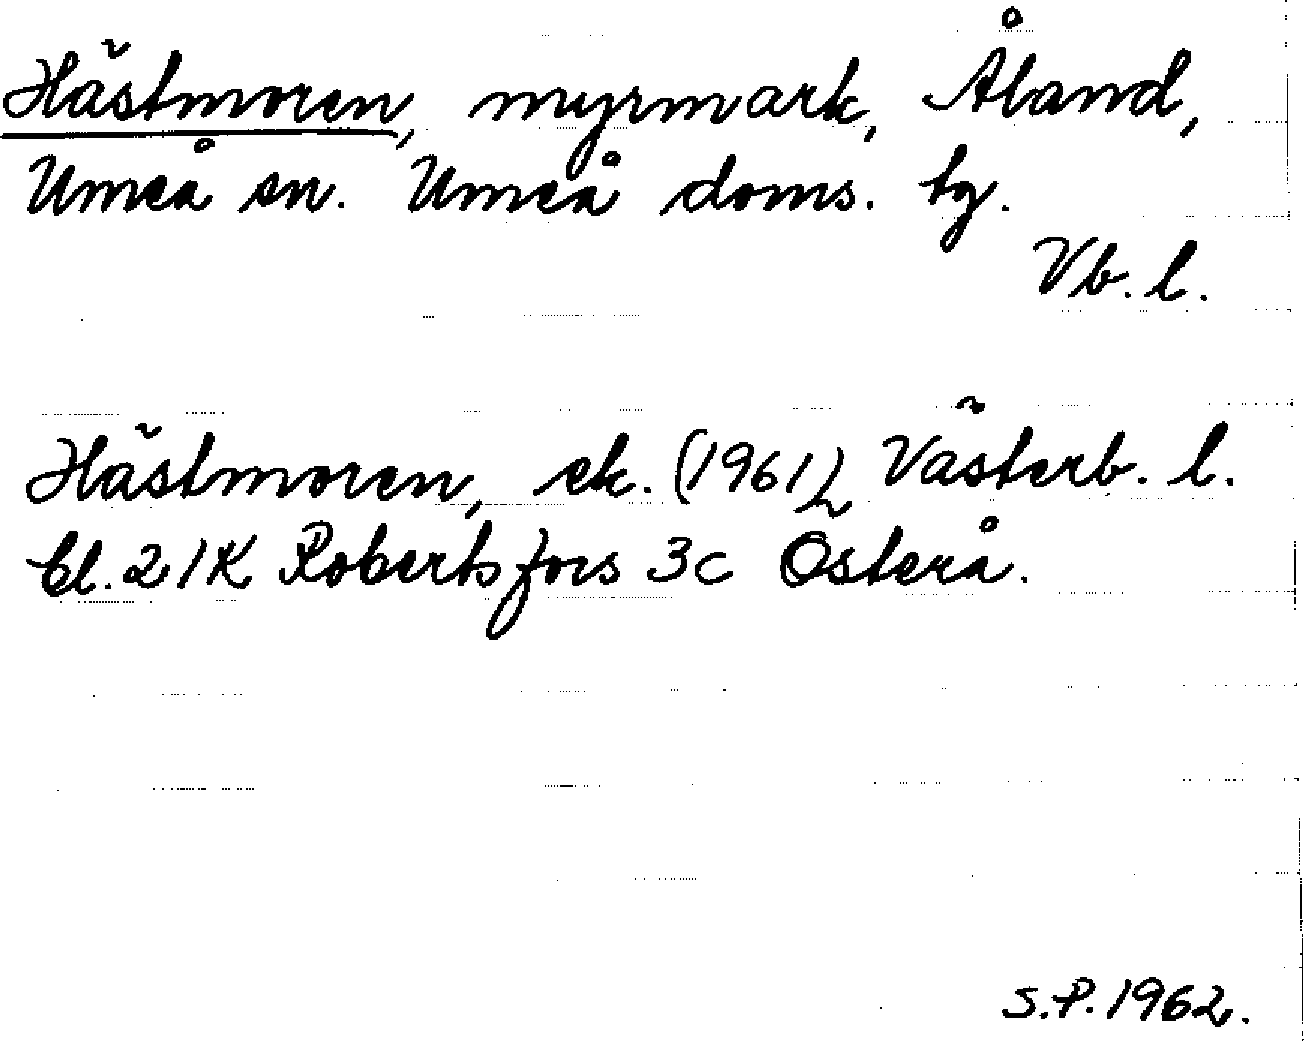 Hästmoren, myrmark, Åland,
Umeå sn. Umeå doms. tg.
Vb. l.
Hästmoren, ek. (1961) Västerb. l.
bl. 21K Robertsfors 3c Österå.
S.P. 1962.